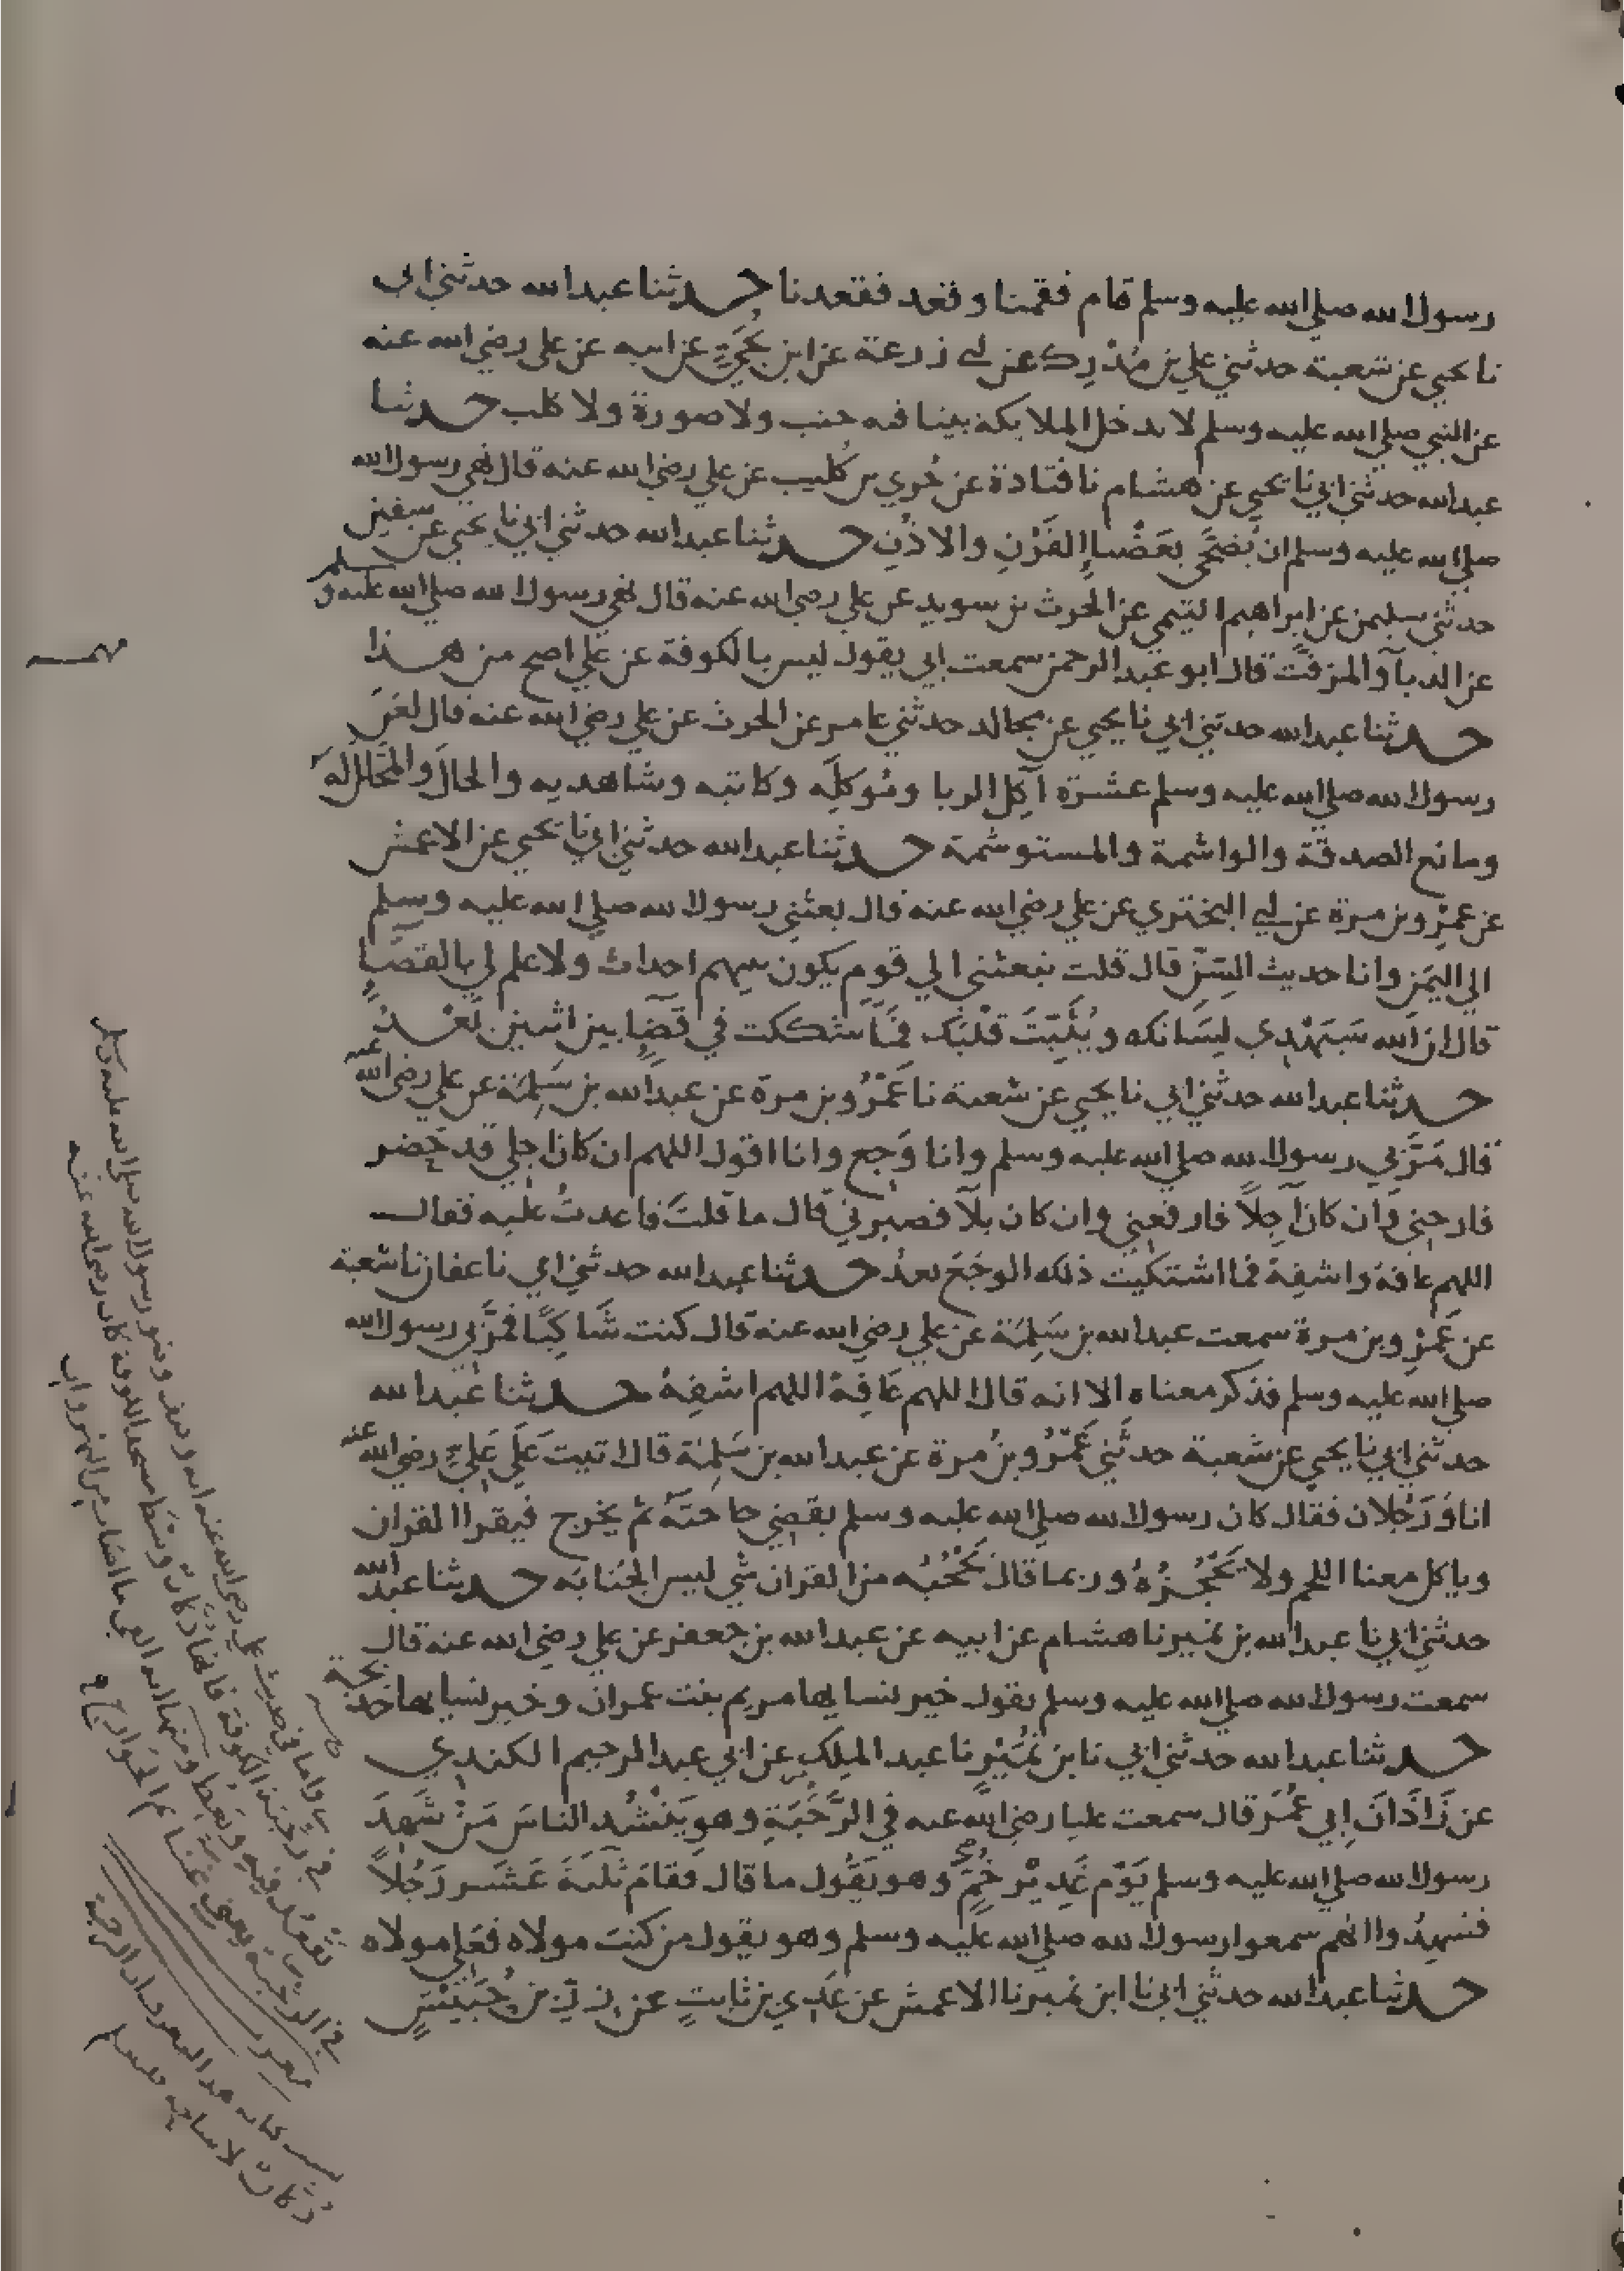 رسول الله صلى الله عليه وسلم قام فقمنا وقعد فقعدنا حدثنا عبد الله حدثني ابي
نا يحيي عن شعبة حدثني علي بن مُدْرِك عن ابي زرعة عن ابن نُجَيّ عن ابيه عن علي رضي الله عنه
عن النبي صلى الله عليه وسلم لا يدخل الملايكة بيتا فيه جنب ولا صورة ولا كلب حدثنا
عبد الله حدثني ابي نا يحيي عن هشام نا قتادة عن جُري بن كُليب عن علي رضي الله عنه قال نهي رسول الله
صلى الله عليه وسلم ان يُضَحَّي بعَضْباءِ القَرْنِ والاذُنِ حدثنا عبد الله حدثني ابي نا يحيي عن سفين
حدثني سليمن عن ابراهيم التيمي عن الحرث بن سويد عن علي رضي الله عنه قال نهي رسول الله صلى الله عليه وسلم
عن الدبآ والمزفّت قال ابو عبد الرحمن سمعت ابي يقول ليس بالكوفة عن علي اصح من هذا
حدثنا عبد الله حدثني ابي نا يحيي عن مجالد حدثني عامر عن الحرث عن علي رضي الله عنه قال لعَنَ
رسول الله صلى الله عليه وسلم عشرة آكِل الربا ومُوكِلَه وكاتبه وشاهديه والحالَّ والمُحَلَّلَ لَهُ
ومانع الصدقة والواشمة والمستوشمة حدثنا عبد الله حدثني ابي نا يحيي عن الاعمش
عن عَمْرِو بن مرة عن ابي البختري عن علي رضي الله عنه قال بعثني رسول الله صلى الله عليه وسلم
الي اليمن وانا حديث السِنّ قال قلت تبعثني الي قوم يكون بينهم احداث ولا علم لي بالقضآ
قال ان الله سَيَهْدِي لِسَانك ويُثَبِّتَ قلْبَك فمَا شككت في قَضآءٍ بين اثنين بَعْدُ
حدثنا عبد الله حدثني ابي نا يحيي عن شعبة نا عَمْرُو بن مرة عن عبد الله بن سَلِمَة عن علي رضي الله عنه
قال مَرَّ بي رسول الله صلى الله عليه وسلم وانا وَجِع وانا اقول اللهم ان كان اجلي قد حَضر
فارحني وان كان آجِلًا فارفعني وان كان بلآ فصبرني قال ما قلتَ فاعدتُ عليه فقال
اللهم عافهْ واشفِهْ فما اشتكيت ذلك الوجَعَ بعدُ حدثنا عبد الله حدثني ابي نا عفان نا شعبة
عن عَمْرِو بن مرة سمعت عبد الله بن سَلِمَة عن علي رضي الله عنه قال كنت شَاكِيًا فمَرَّ بي رسول الله
صلى الله عليه وسلم فذكر معناه الا انه قال اللهم عَافِهْ اللهم اشفِهْ حدثنا عبد الله
حدثني ابي نا يحيي عن شعبة حدثني عَمْرُو بنُ مرة عن عبد الله بن سَلِمَة قال اتيت عَلَي عَلِيّ رضي الله عنه
انا وَرَجُلان فقال كان رسول الله صلى الله عليه وسلم يقضي حاجَتَهُ ثم يخرج فيقرا القران
وياكل معنا اللحم ولا يَحْجُزُهُ وربما قال يَحْجُبُه من القران شي ليس الجنابة حدثنا عبد الله
حدثني ابي نا عبد الله بن نمير نا هشام عن ابيه عن عبد الله بن جعفر عن علي رضي الله عنه قال
سمعت رسول الله صلى الله عليه وسلم يقول خير نسايها مريم بنت عمران وخير نسايها خديجة
حدثنا عبد الله حدثني ابي نا بن نُمَيْرٍ نا عبد المِلك عن ابي عبد الرحيم الكندي
عن زَاذَانَ ابي عُمَرَ قال سمعت عليا رضي الله عنه في الرَّحَبَةِ وهو يَنْشُد الناسَ مَنْ شَهِدَ
رسول الله صلى الله عليه وسلم يَوْمَ غَدِيْرِ خُمٍّ وهو يَقُول ما قال فقامَ ثَلَثَةَ عَشَر رَجُلاً
فشهِدُوا انهم سمعوا رسول الله صلى الله عليه وسلم وهو يقول من كنت مولاه فعَلي مولاه
حدثنا عبد الله حدثني ابي نا ابن نمير نا الاعمش عن عَدِي بن ثابتٍ عن زِرّ بن حُبَيْشٍ
مهمـ
واما في حديث علي رضي الله عنه انه وصف وضو رسول الله صلى الله عليه وسلم
في رحبة الكوفة فانها دكان وسط مسجد الكوفة كان رضي الله عنه
تقعد فيه ويعظ ومنها انه القي ما اصاب من النهروان
في الرحبة يعني غنايم الخوارج